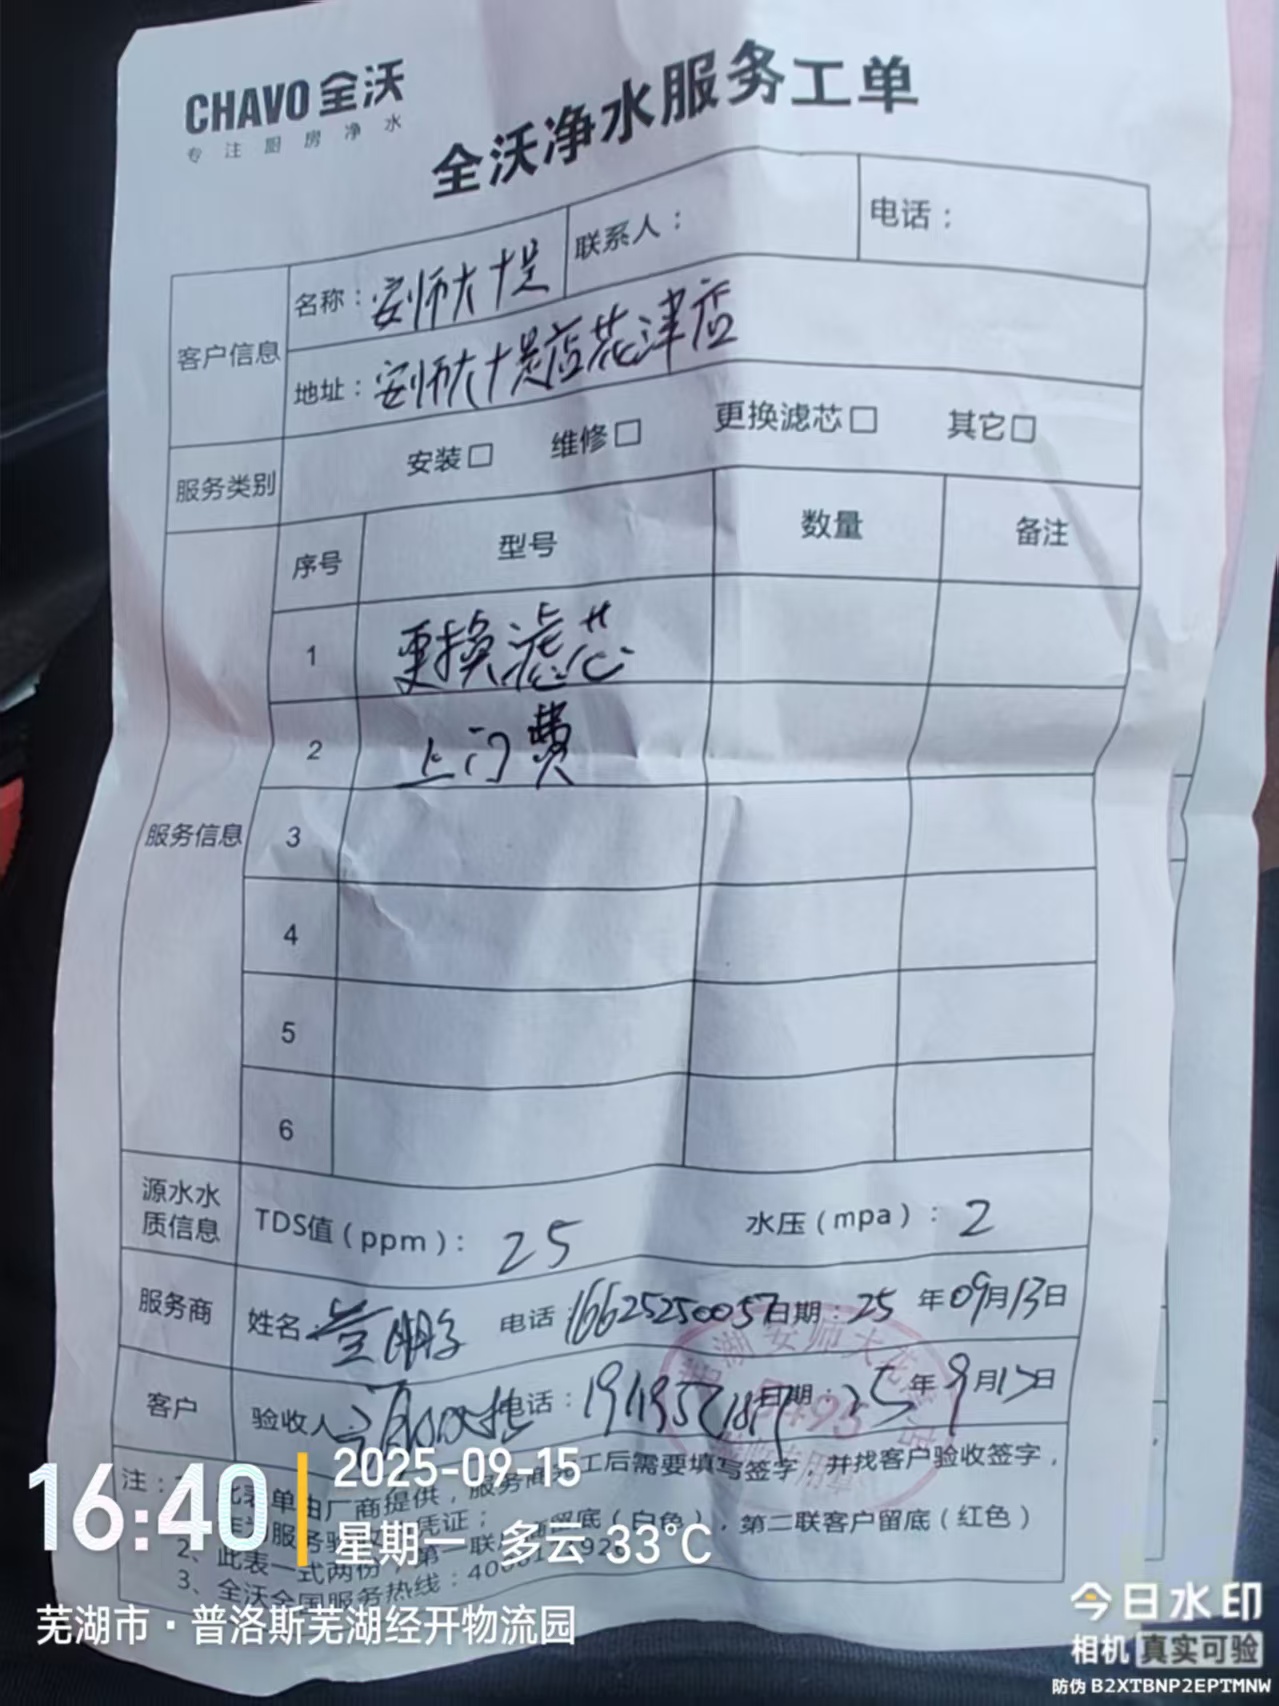 CHAVO 全沃
专注厨房净水
全沃净水服务工单
客户信息
名称：安师大十足
联系人：
电话：
地址：安师大十足店花津店
服务类别
安装□ 维修□ 更换滤芯□ 其它□
服务信息
序号 型号 数量 备注
1 更换滤芯
2 上门费
3
4
5
6
源水水质信息
TDS值（ppm）：25 水压（mpa）：2
服务商
姓名： 电话：16625250057 日期：25年09月13日
客户
验收人： 电话： 日期：25年9月13日
注：
此表单由厂商提供，服务商 工后需要填写签字，并找客户验收签字，
凭证；
2、此表一式两份，第一联 留底（白色），第二联客户留底（红色）
3、全沃全国服务热线：
16:40
2025-09-15
星期一 多云 33°C
芜湖市·普洛斯芜湖经开物流园
今日水印
相机 真实可验
防伪 B2XTBNP2EPTMNW